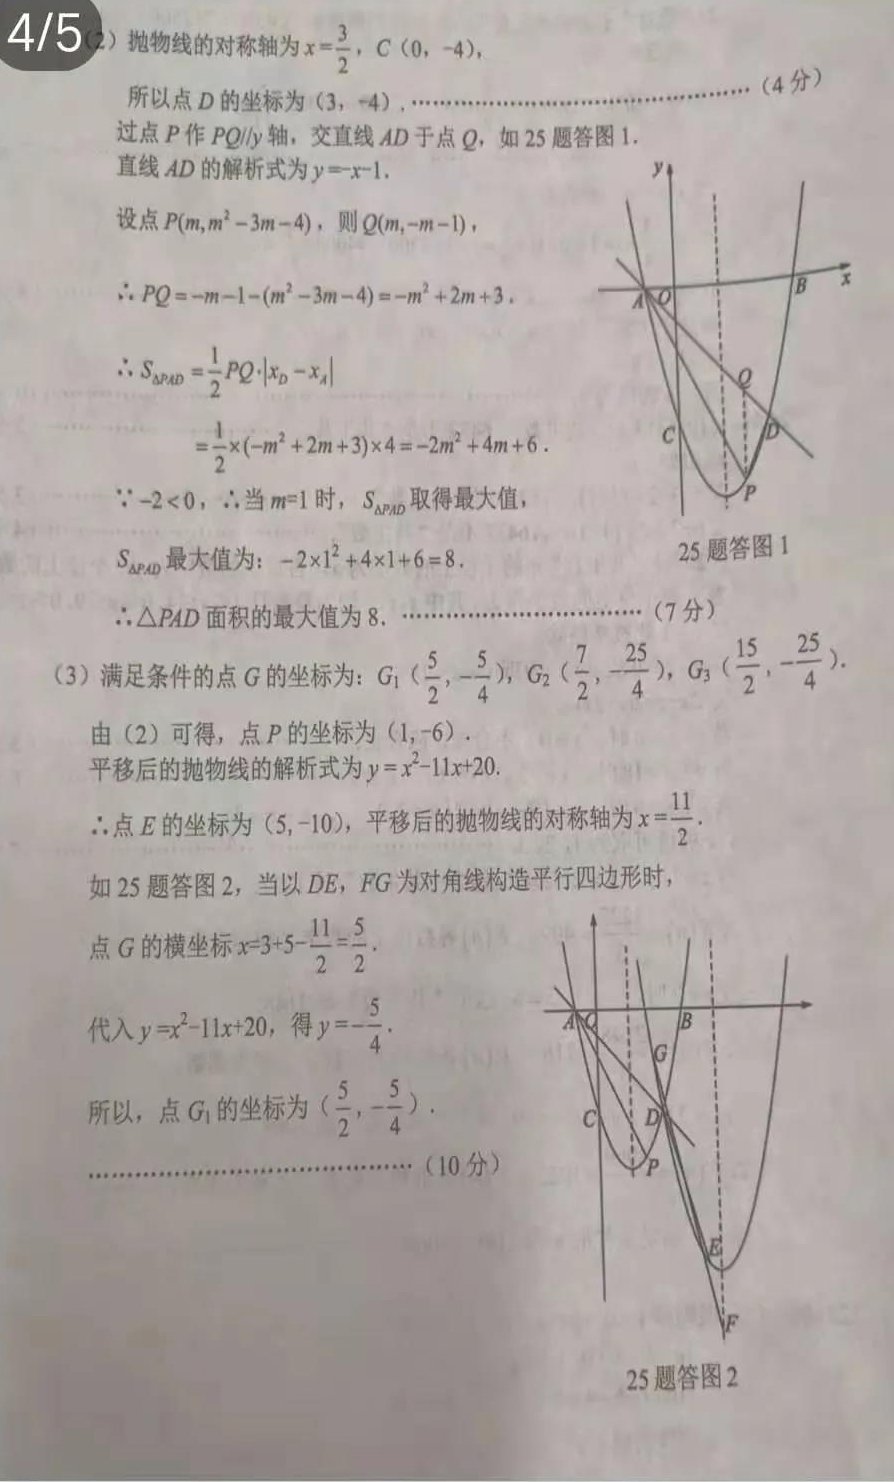 4/5
(2) 抛物线的对称轴为 x=3/2，C（0，-4），
所以点 D 的坐标为（3，-4）.……………………（4 分）
过点 P 作 PQ//y 轴，交直线 AD 于点 Q，如 25 题答图 1.
直线 AD 的解析式为 y=-x-1.
设点 P(m,m²-3m-4)，则 Q(m,-m-1)，
∴ PQ=-m-1-(m²-3m-4)=-m²+2m+3.
∴ S△PAD=1/2 PQ·|x_D-x_A|
=1/2×(-m²+2m+3)×4=-2m²+4m+6.
∵ -2<0，∴当 m=1 时，S△PAD 取得最大值，
S△PAD 最大值为：-2×1²+4×1+6=8.
∴△PAD 面积的最大值为 8.……………………（7 分）
y
x
A
O
B
Q
C
D
P
25 题答图 1
（3）满足条件的点 G 的坐标为：G₁（5/2，-5/4），G₂（7/2，-25/4），G₃（15/2，-25/4）.
由（2）可得，点 P 的坐标为（1,-6）.
平移后的抛物线的解析式为 y=x²-11x+20.
∴点 E 的坐标为（5,-10），平移后的抛物线的对称轴为 x=11/2.
如 25 题答图 2，当以 DE，FG 为对角线构造平行四边形时，
点 G 的横坐标 x=3+5-11/2=5/2.
代入 y=x²-11x+20，得 y=-5/4.
所以，点 G₁ 的坐标为（5/2，-5/4）.
……………………（10 分）
A
O
B
G
C
D
P
E
F
25 题答图 2